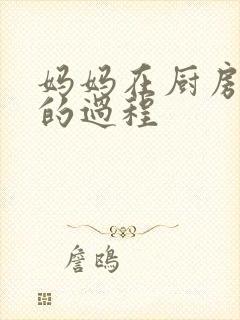 妈妈在厨房
的过程
詹鸥